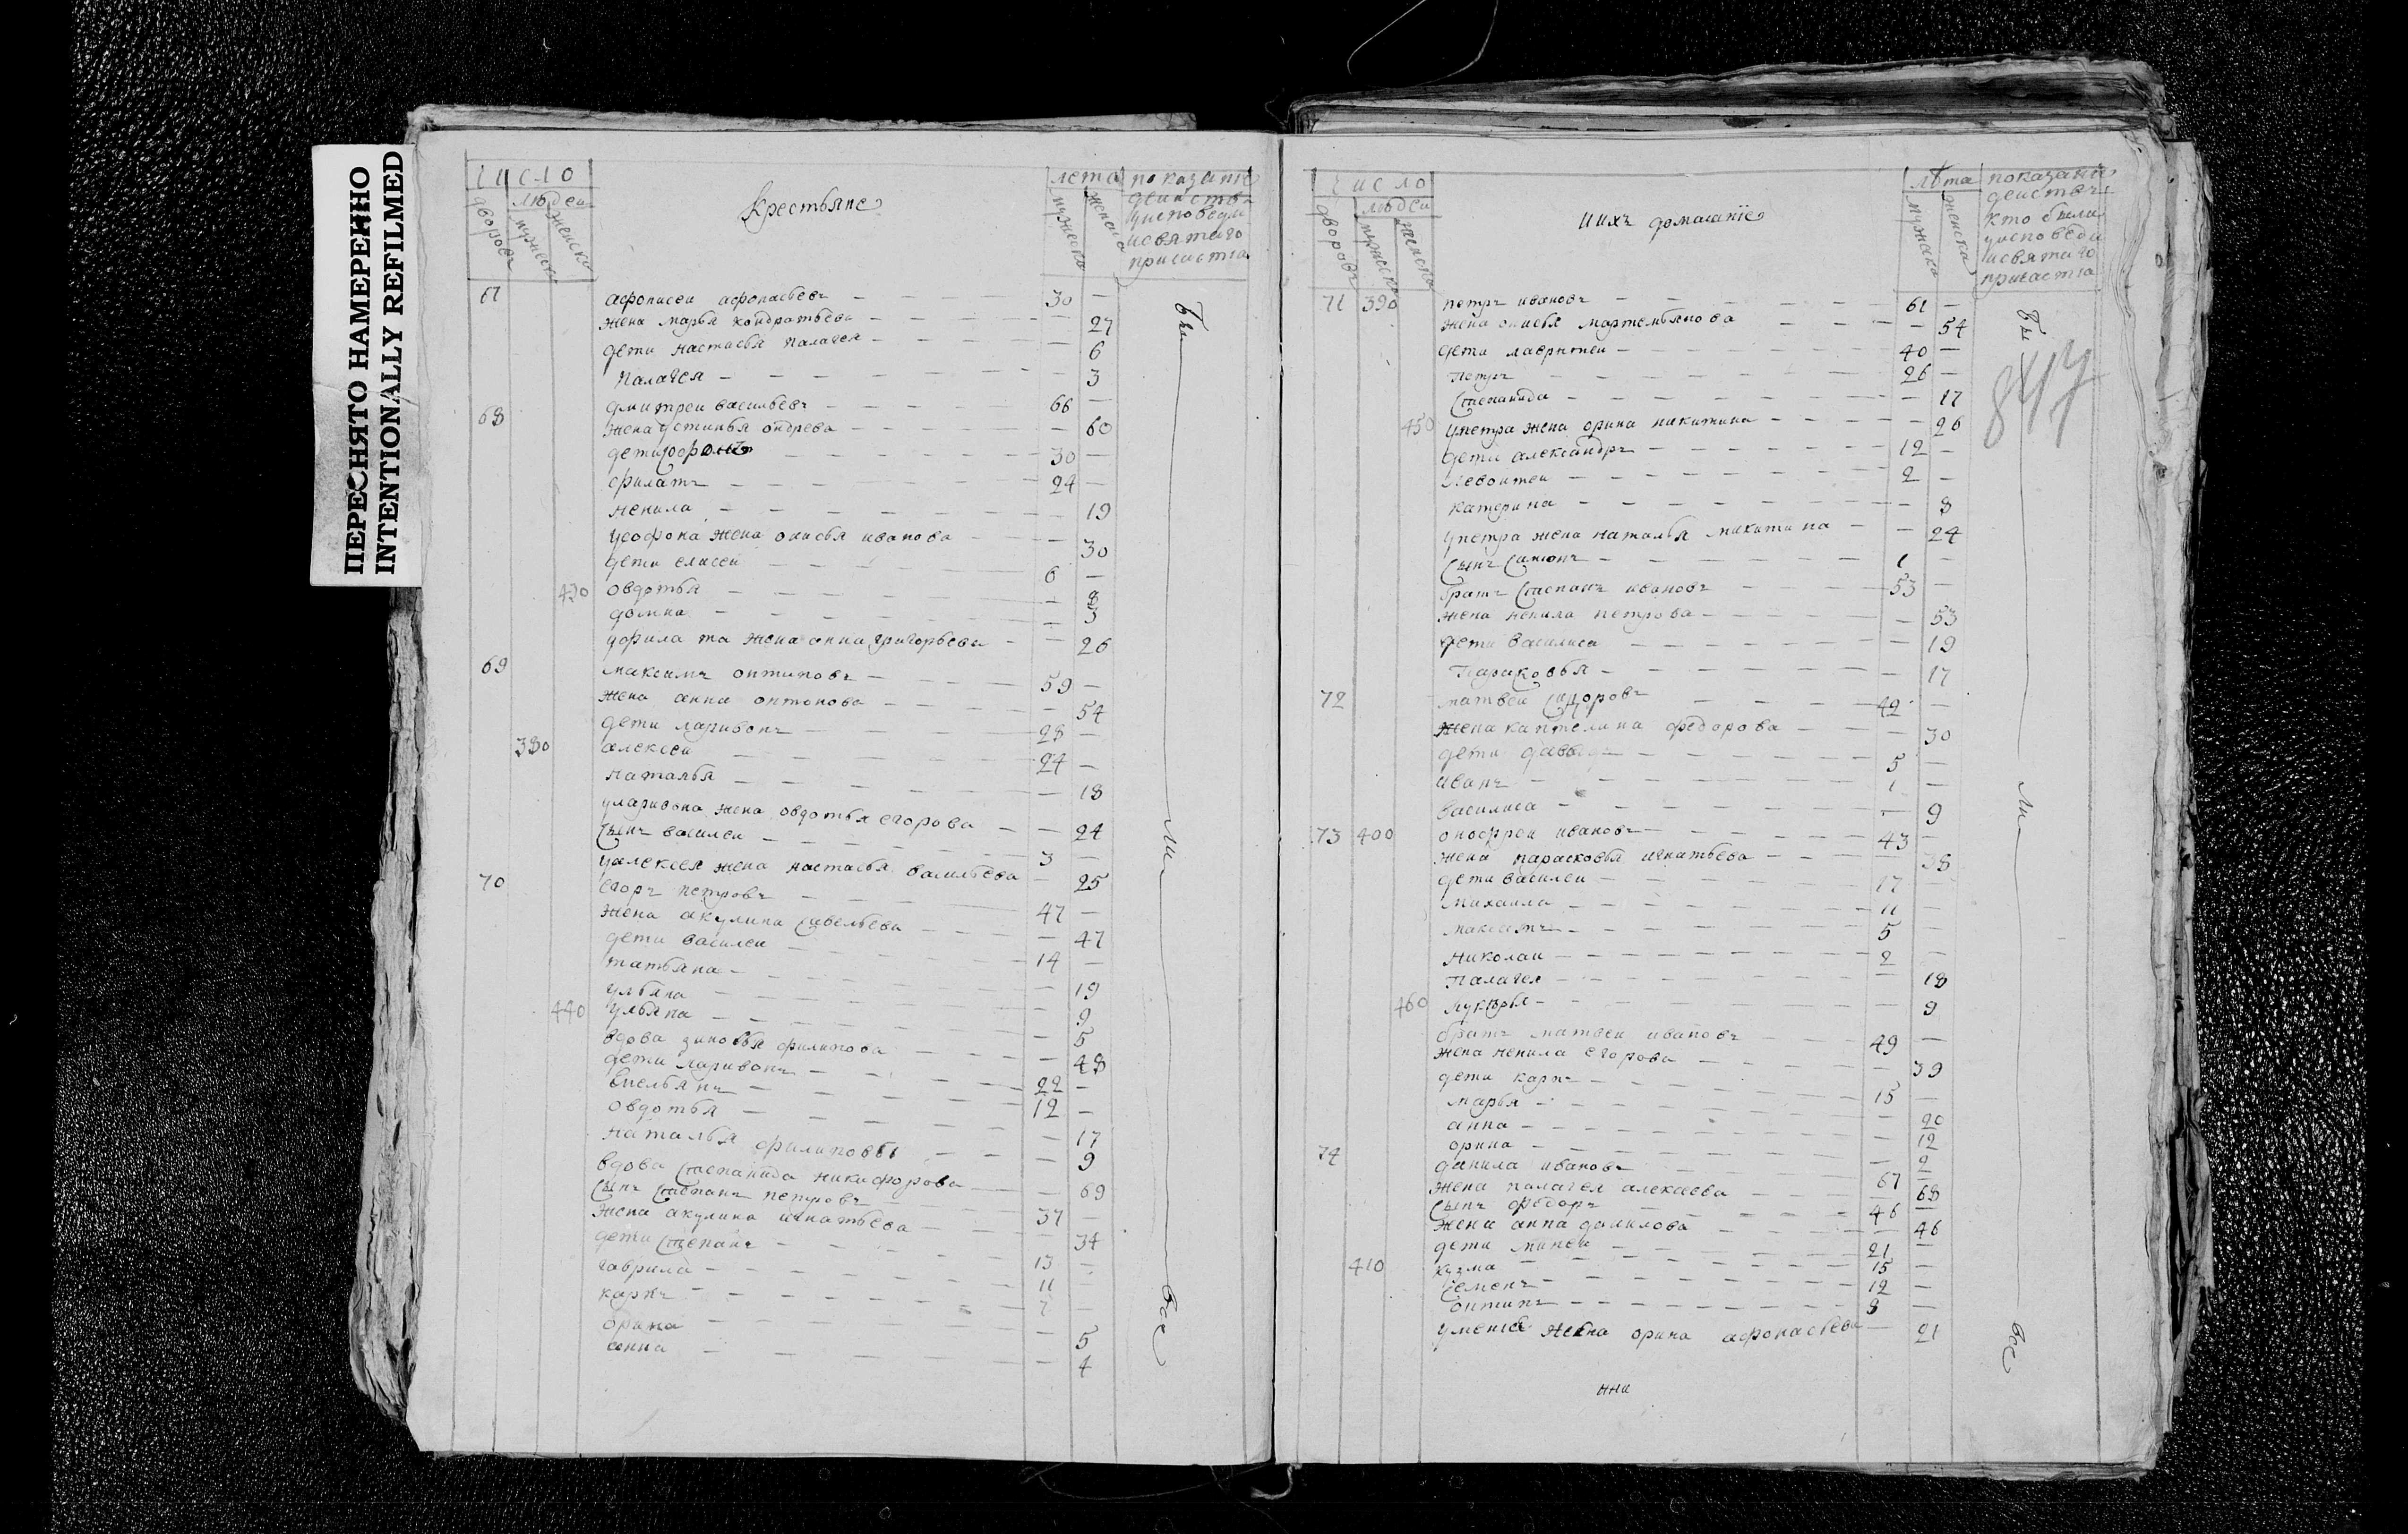 ПЕРЕСНЯТО НАМЕРЕННО
INTENTIONALLY REFILMED
число
людей
дворовъ
мужеска
женска
Крестьяне
лета
мужеска
женска
показание
действъ
уисповеди
исвятаго
причастия
67 афонасеи афонасьевъ 30 —
жена марья кондратьева — 27
дети настасья 6
палагея — 3
68 дмитреи васильевъ 66 —
жена устинья ондрева — 60
дети 30 —
филатъ 24 —
ненила — 19
жена онисья иванова — 30
дети елисеи 6 —
430 овдотья — 8
домна — 3
уфила та жена анна григорьева — 26
69 максимъ онтиповъ 59 —
жена анна онтонова — 54
дети ларивонъ 28 —
380 алексеи 24 —
наталья — 18
уларивона жена овдотья егорова — 24
сынъ василеи 3 —
уалексея жена настасья васильева — 25
70 егоръ петровъ 47 —
жена акулина савельева — 47
дети василеи 14 —
татьяна — 19
ульяна — 9
440 ульяна — 5
вдова зиновья филипова — 48
дети ларивонъ 22 —
емельянъ 12 —
овдотья — 17
наталья филиповы — 9
вдова степанида никифорова — 69
сынъ степанъ петровъ 37 —
жена акулина игнатьева — 34
дети степанъ 13 —
гаврила 11 —
карпъ 7 —
орина — 5
анна — 4
бы
ли
всѣ
число
людеи
дворовъ
мужеска
женска
иихъ домашние
лѣта
мужеска
женска
показание
деиствъ
кто были
уисповеди
исвятаго
причастия
847
71 390 петръ ивановъ 61 —
жена онисья мартемьянова — 54
дети лаврентеи 40 —
петръ 26 —
степанида — 17
450 упетра жена орина никитина — 26
дети александръ 12 —
левонтеи 2 —
катерина — 8
упетра жена наталья никитина — 24
сынъ симионъ 1 —
братъ степанъ ивановъ 53 —
жена ненила петрова — 53
дети василиса — 19
парасковья — 17
72 матвеи сидоровъ 42 —
жена каптелина федорова — 30
дети давыдъ 5 —
иванъ 1 —
василиса — 9
73 400 оноофреи ивановъ 43 —
жена парасковья игнатьева — 38
дети василеи 17 —
михаила 11 —
максимъ 5 —
николаи 2 —
палагея — 18
460 лукерья — 9
братъ матвеи ивановъ 49 —
жена ненила егорова — 39
дети карпъ 15 —
марья — 20
анна — 12
орина — 2
74 данила ивановъ 67 —
жена палагея алексеева — 68
сынъ федоръ 46 —
жена анна данилова — 46
дети минеи 21 —
410 кузма 15 —
семенъ 12 —
онтипъ 8 —
уминея жена орина афонасьева — 21
бы
ли
всѣ